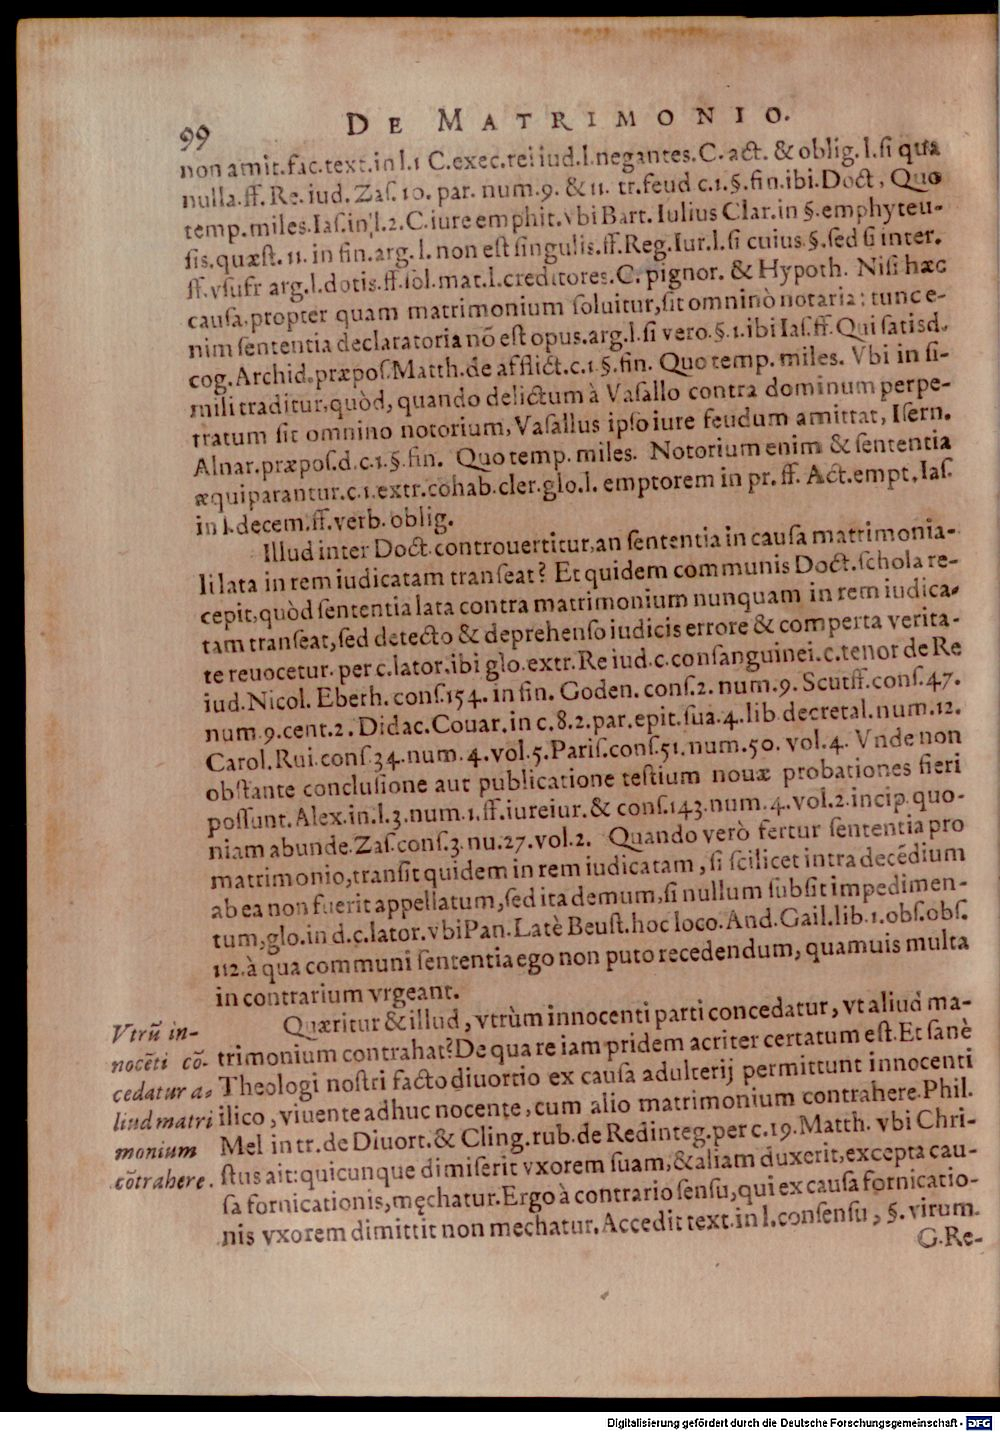 99 DE MATRIMONIO.
non amit. fac. text. in l. 1 C. exec. rei iud. l. negantes. C. act. & oblig. l. si qua
nulla. ff. Re. iud. Zas. 10. par. num. 9. & 11. tr. feud c. 1. §. fin. ibi. Doct, Quo
temp. miles. Ias. in l. 2. C. iure emphit. vbi Bart. Iulius Clar. in §. emphyteu-
sis. quæst. 11. in fin. arg. l. non est singulis. ff. Reg. Iur. l. si cuius §. sed si inter.
ff. vsufr arg. l. dotis. ff. sol. mat. l. creditores. C. pignor. & Hypoth. Nisi hæc
causa, propter quam matrimonium soluitur, sit omninò notaria: tunc e-
nim sententia declaratoria nō est opus. arg. l. si vero. §. 1. ibi Ias. ff. Qui satisd.
cog. Archid. præpos. Matth. de afflict. c. 1 §. fin. Quo temp. miles. Vbi in si-
mili traditur, quòd, quando delictum à Vasallo contra dominum perpe-
tratum sit omnino notorium, Vasallus ipso iure feudum amittat, Isern.
Alnar. præpos. d. c. 1. §. fin. Quo temp. miles. Notorium enim & sententia
æquiparantur. c. 1. extr. cohab. cler. glo. l. emptorem in pr. ff. Act. empt. Ias.
in l. decem. ff. verb. oblig.
Illud inter Doct. controuertitur, an sententia in causa matrimonia-
li lata in rem iudicatam transeat? Et quidem communis Doct. schola re-
cepit, quòd sententia lata contra matrimonium nunquam in rem iudica-
tam transeat, sed detecto & deprehenso iudicis errore & comperta verita-
te reuocetur. per c. lator. ibi glo. extr. Re iud. c. consanguinei. c. tenor de Re
iud. Nicol. Eberh. cons. 154. in fin. Goden. cons. 2. num. 9. Scutff. cons. 47.
num. 9. cent. 2. Didac. Couar. in c. 8. 2. par. epit. sua. 4. lib decretal. num. 12.
Carol. Rui. cons. 34. num. 4. vol. 5. Paris. cons. 51. num. 50. vol. 4. Vnde non
obstante conclusione aut publicatione testium nouæ probationes fieri
possunt. Alex. in. l. 3. num. 1. ff. iureiur. & cons. 143. num. 4. vol. 2. incip. quo-
niam abunde. Zas. cons. 3. nu. 27. vol. 2. Quando verò fertur sententia pro
matrimonio, transit quidem in rem iudicatam, si scilicet intra decēdium
ab ea non fuerit appellatum, sed ita demum, si nullum subsit impedimen-
tum, glo. in d. c. lator. vbi Pan. Latè Beust. hoc loco. And. Gail. lib. 1. obs. obs.
112. à qua communi sententia ego non puto recedendum, quamuis multa
in contrarium vrgeant.
Quæritur & illud, vtrùm innocenti parti concedatur, vt aliud ma-
trimonium contrahat? De qua re iam pridem acriter certatum est. Et sanè
Theologi nostri facto diuortio ex causa adulterij permittunt innocenti
ilico, viuente adhuc nocente, cum alio matrimonium contrahere. Phil.
Mel in tr. de Diuort. & Cling. rub. de Redinteg. per c. 19. Matth. vbi Chri-
stus ait: quicunque dimiserit vxorem suam, & aliam duxerit, excepta cau-
sa fornicationis, męchatur. Ergo à contrario sensu, qui ex causa fornicatio-
nis vxorem dimittit non mechatur. Accedit text. in l. consensu, §. virum.
G. Re-
Vtrū in-
nocēti cō-
cedatur a-
liud matri
monium
cōtrahere.
Digitalisierung gefördert durch die Deutsche Forschungsgemeinschaft - DFG